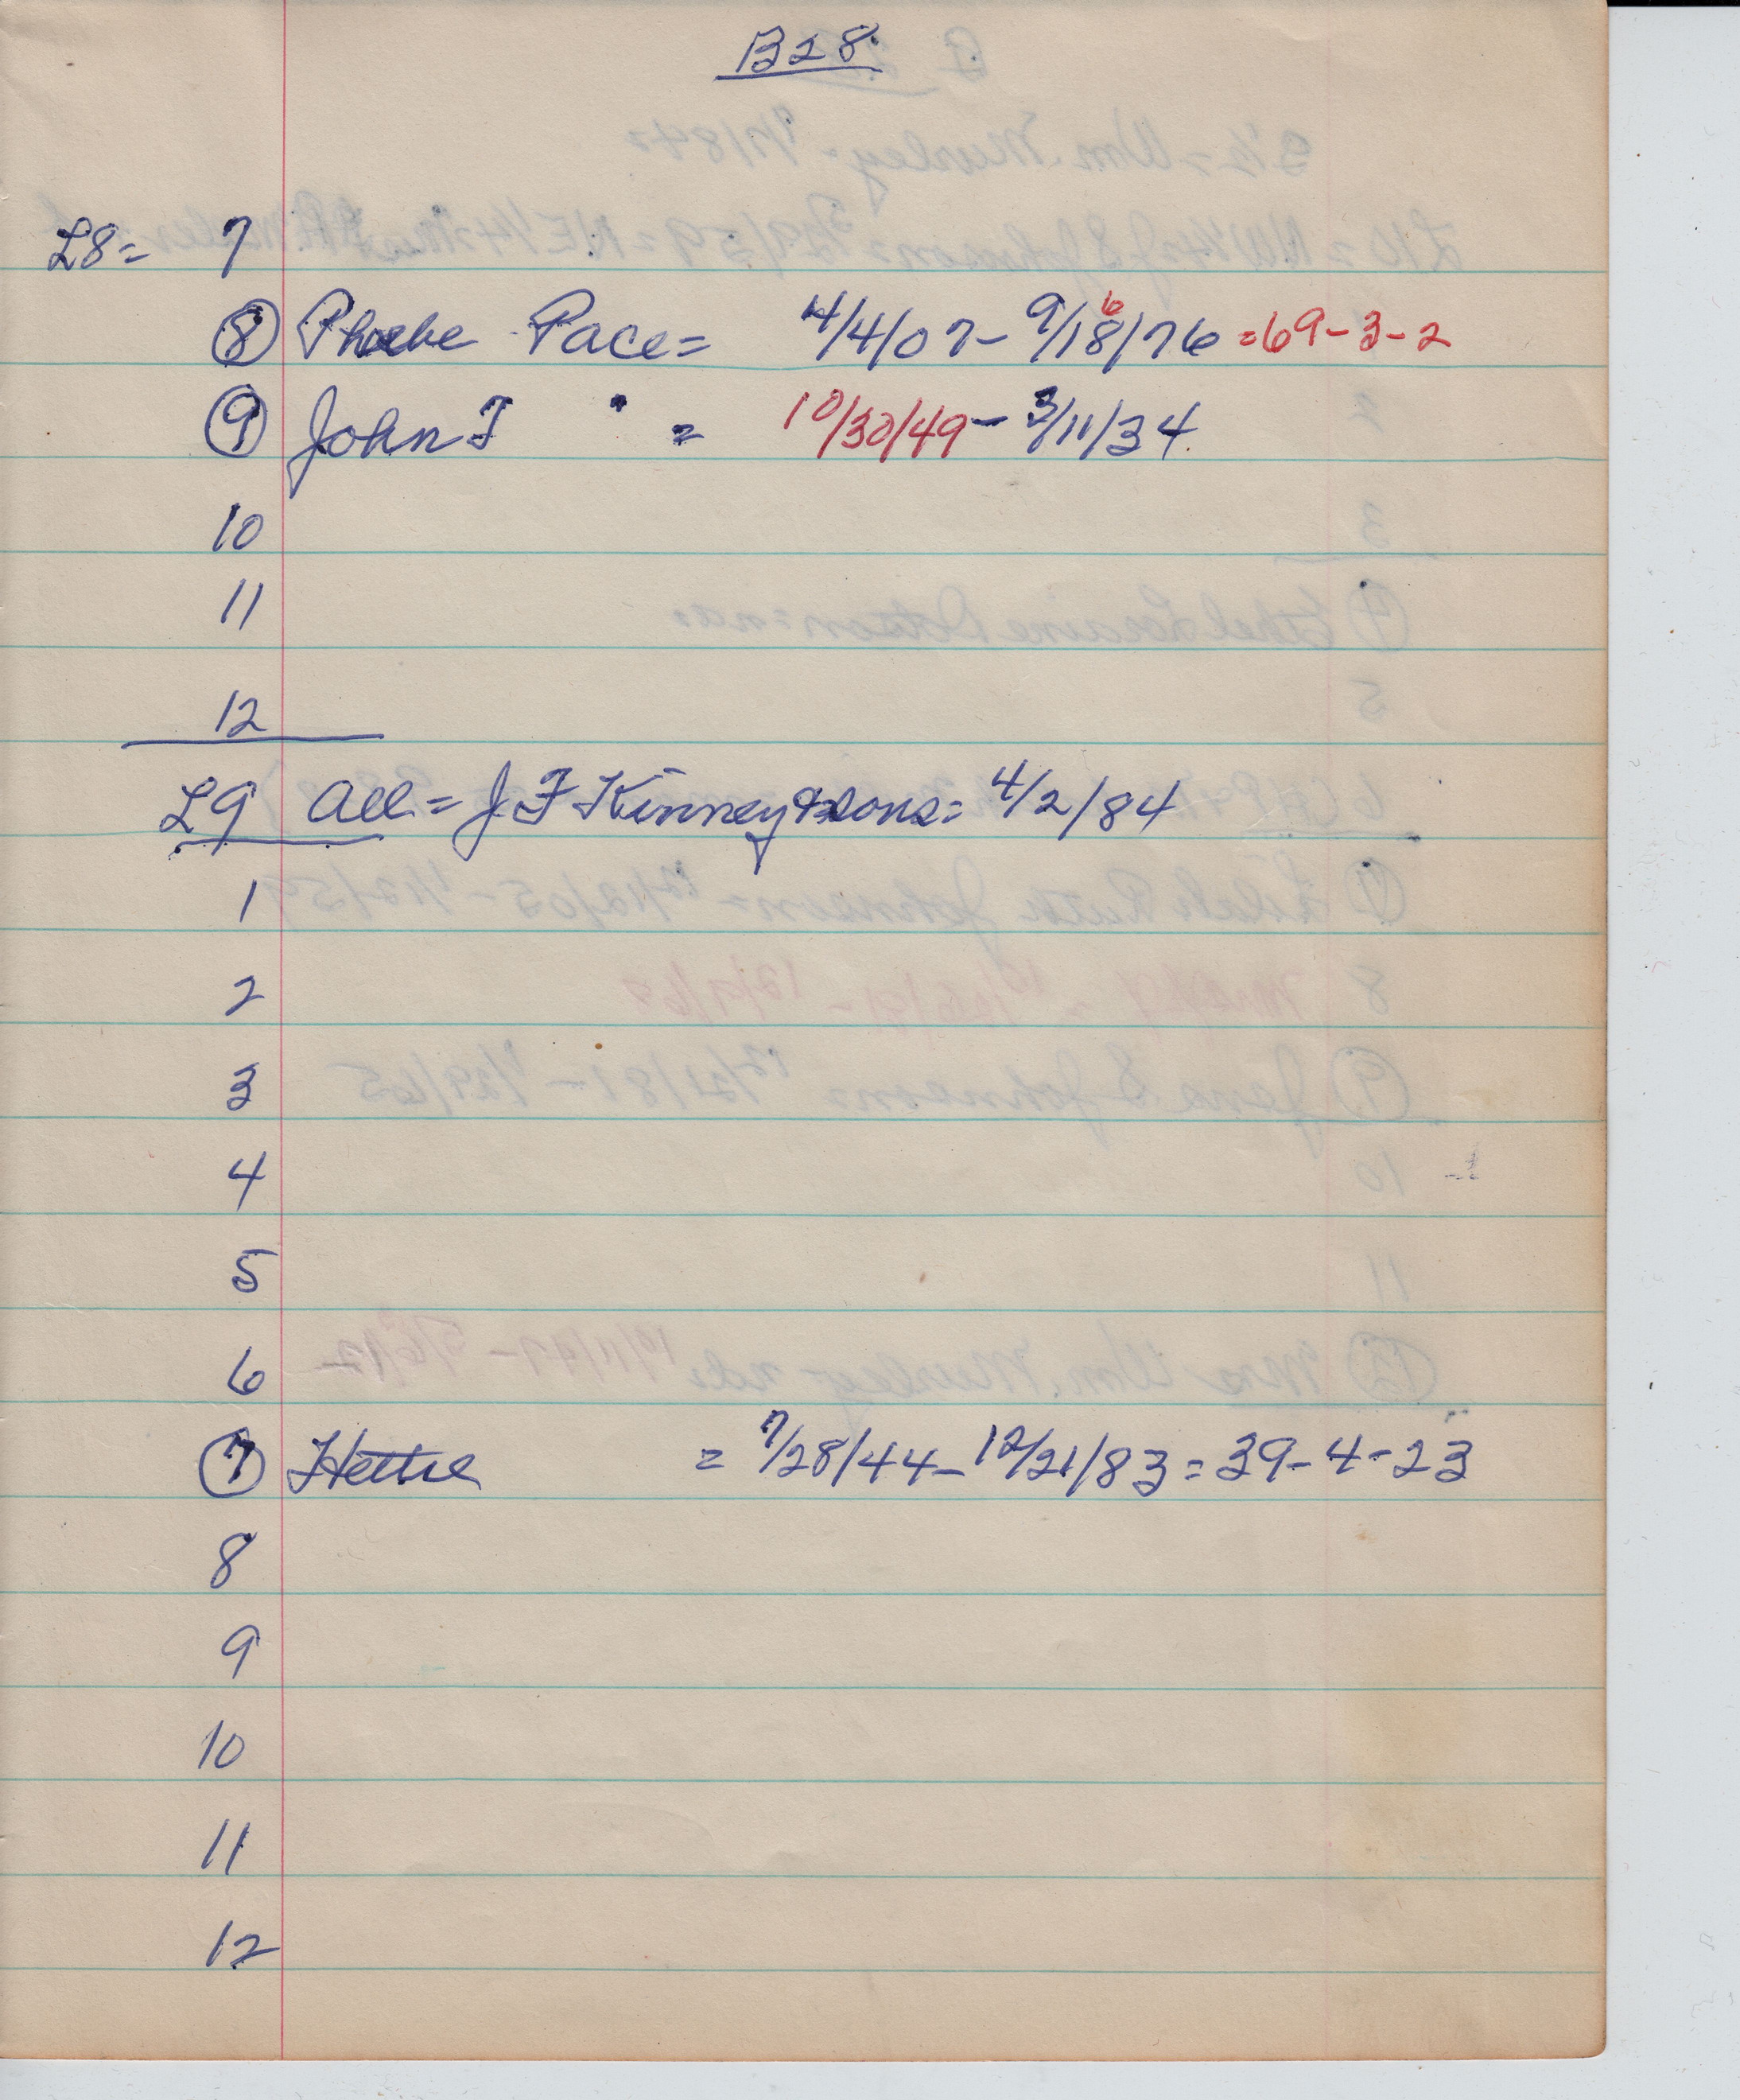 B28
L8= 7
8 Phoebe Pace= 4/4/07- 9/18/76 =69-3-2
6
9 John F " = 10/30/49- 3/11/34
10
11
12
L9 All = J F Kinney & sons= 4/2/84
1
2
3
4
5
6
7 Hettie = 7/28/44- 12/21/83 = 39-4-23
8
9
10
11
12